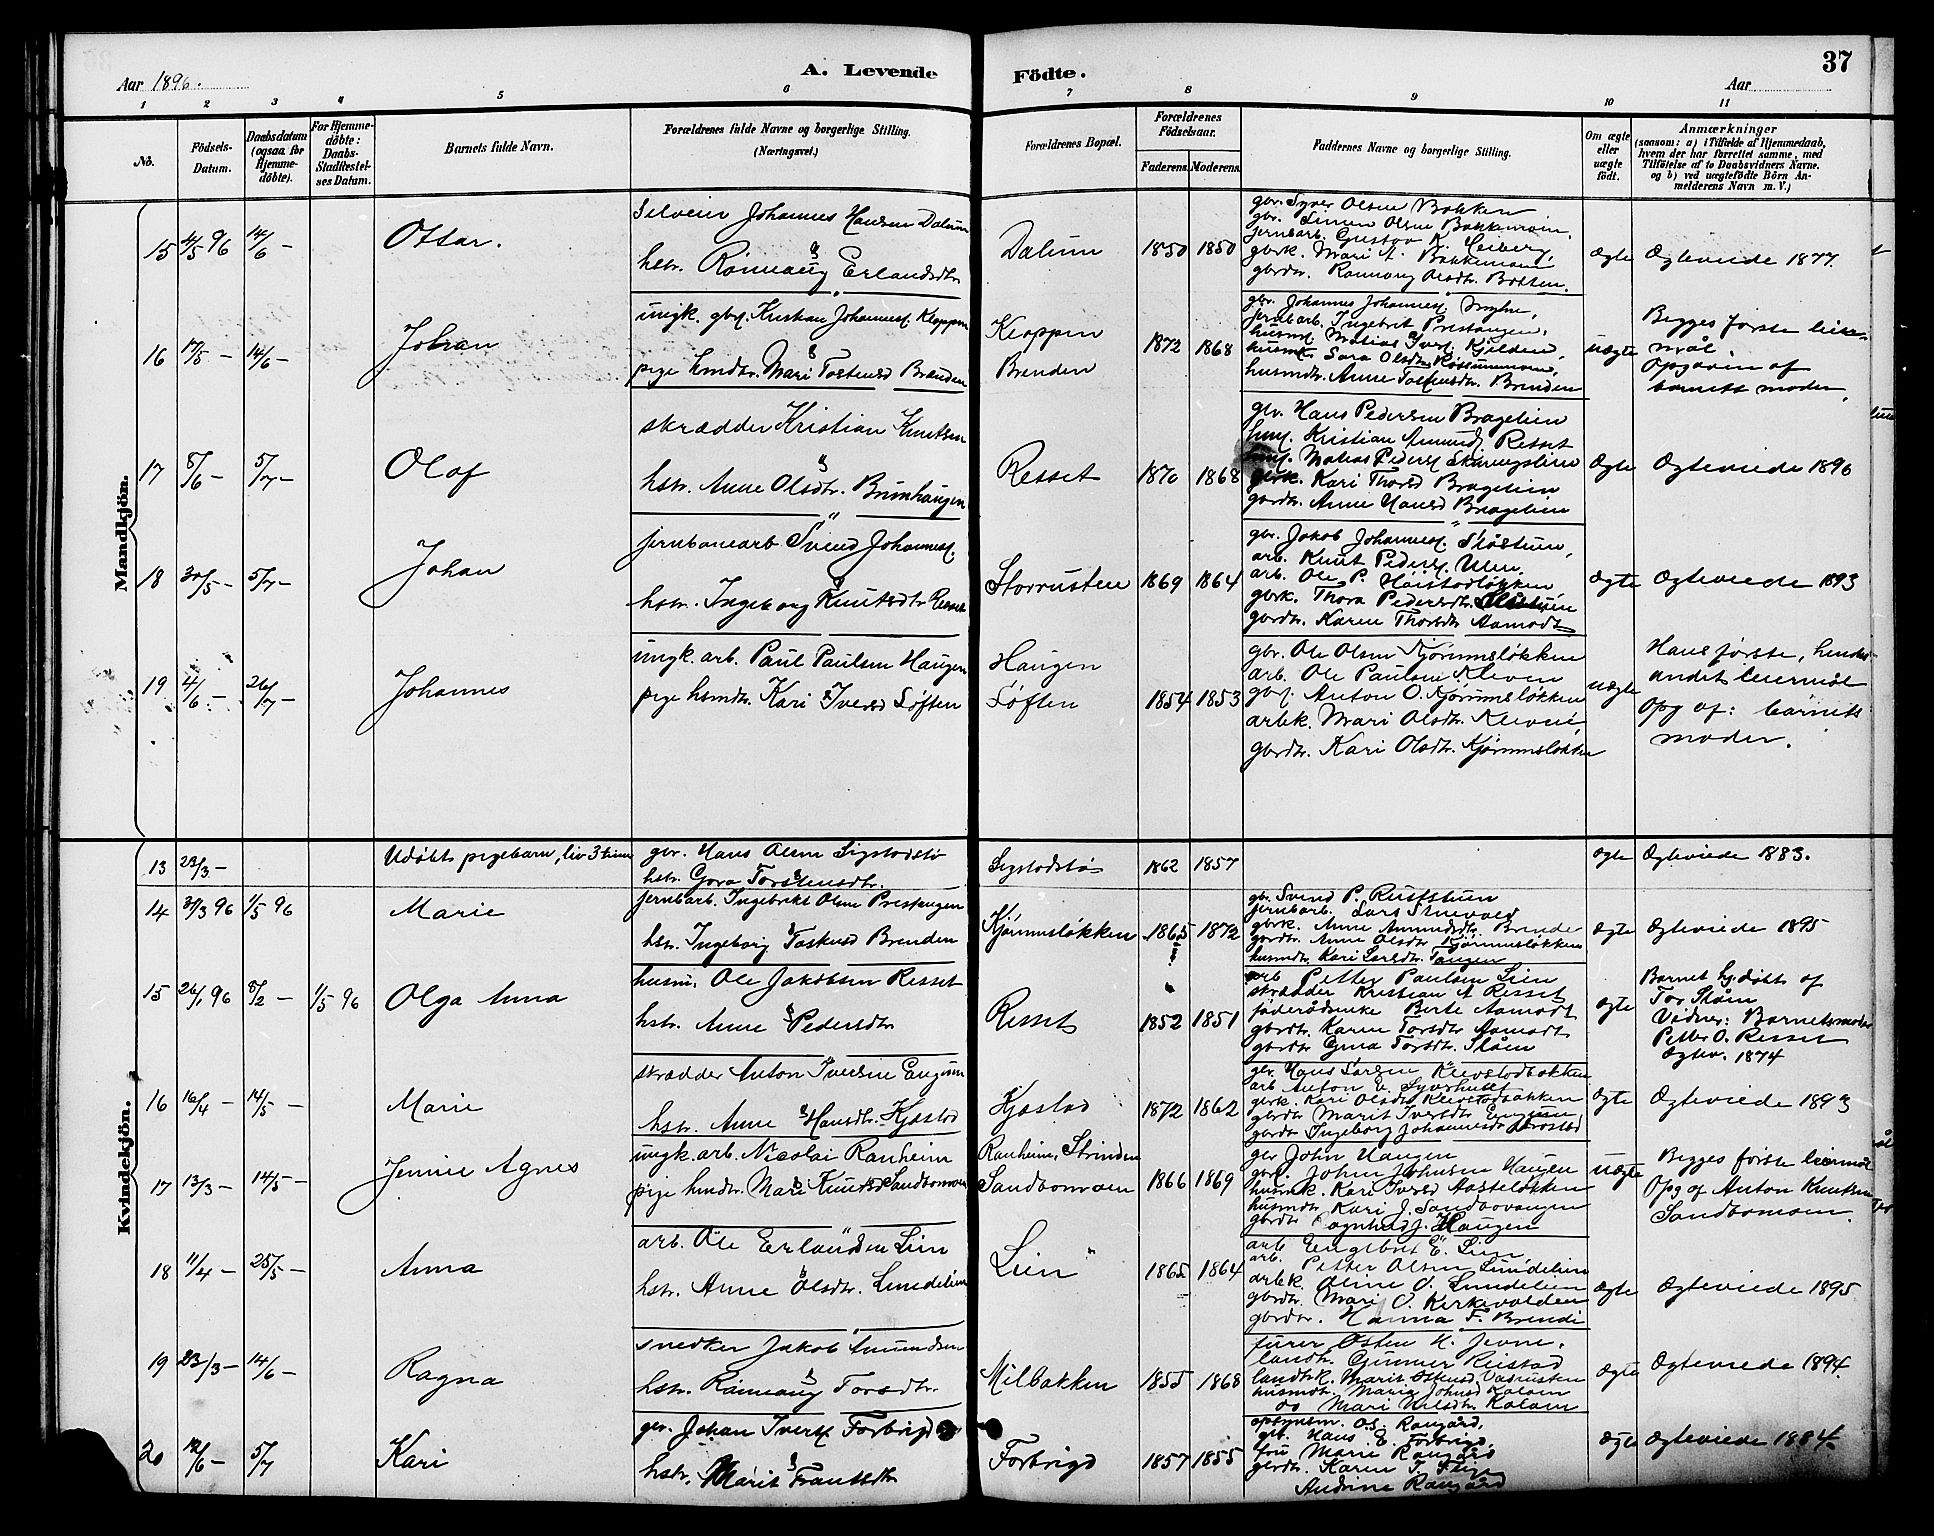 37
Aar 1896.
A. Levende Födte.
Aar
1 2 3 4 5 6 7 8 9 10 11
No.
Födsels-Datum.
Daabsdatum (ogsaa for Hjemme-döbte).
For Hjemme-döbte: Daabs-Stadfæstel-ses Datum.
Barnets fulde Navn.
Forældrenes fulde Navne og borgerlige Stilling. (Næringsvei.)
Forældrenes Bopæl.
Forældrenes Födselsaar.
Faderens. Moderens.
Faddernes Navne og borgerlige Stilling.
Om ægte eller uægte födt.
Anmærkninger
(saasom: a) i Tilfælde af Hjemmedaab,
hvem der har forrettet samme, med
Tilföielse af to Daabsvidners Navne.
og b) ved uægtefödte Börn An-
melderens Navn m. V.)
Mandkjön.
15 4/5 96 14/6 - Ottar.
Selveier Johannes Hansen Dalum
hstr. Rönnaug Erlandsdtr
Dalum 1850 1850
gbr. Syver Olsen Bakken
gbr. Simen Olsen Bakkemoen.
jernbarb. Gustav K. Leiberg,
gbrk. Mari A. Bakkemoen
gbrdtr. Rannaug Olsdtr. Botten.
Ægte Ægteviede 1877.
16 17/5 - 14/6 - Johan
ungk. gbrs. Kristian Johanness. Kloppen
pige hmdtr. Mari Tostensd Brænden
Kloppen
Brenden
1872 1868
gbr. Johannes Johanness. Myhre,
jernbarb. Ingebrit Prestangen,
husm. Matias Ivers. Kjelden,
husmk. Sara Olsdtr.
husmdtr. Anne Tostensdtr. Brenden
uægte
Begges første leier-
mål.
Opgaven af
barnets moder.
17 8/6 - 5/7 - Olaf
skrædder Kristian Knutsen
hstr. Anne Olsdtr. Brunhaugen
Resset 1870 1868
gbr. Hans Pedersen Bragelien
Kristian Amunds. Resset
Matias Peders.
gbrk. Kari Thorsd Bragelien
gbrdtr. Anne Hansd Bragelien
Ægte Ægteviede 1896
18 30/5 - 5/7 - Johan
jernbanearb Svend Johanness.
hstr. Ingeborg Knutsdtr. Resset
Storrusten 1869 1864
gbr. Jakob Johanness. Slåstuen,
arb. Knut Peders. Ulen.
arb. Ole P. Høistadløkken
gbrk. Thora Pedersdtr. Slåstuen
gbrdtr. Karen Thorsdtr Aamodt
ægte Ægteviede 1893
19 4/6 - 26/7 - Johannes
ungk. arb. Paul Paulsen Haugen
pige hsmdtr. Kari Iversd Løften
Haugen
Løften
1854 1853
gbr. Ole Olsen Kjørumsløkken
arb. Ole Paulsen Kleven
gbs. Anton O. Kjørumsløkken
arbk. Mari Olsdtr. Kleven
gbrdtr. Kari Olsdtr. Kjørumsløkken
uægte
Hans første, hendes
andet leiermål
Opg af: barnets
moder.
Kvindekjön.
13 23/3 - Udøbt pigebarn, liv 3 timer
gbr. Hans Olsen Sigstadstø
hstr. Gora Torstensdtr.
Sigstadstø 1862 1857
ægte Ægteviede 1883.
14 31/3 96 1/5 96 Marie
jernbarb. Ingebrikt Olsen Prestangen
hstr. Ingeborg Tostensd Brenden
Kjørumsløkken 1865 1872
gbr. Svend P. Ruststuen
jernbarb. Lars
gbrk. Anne Amundsdtr. Brende
gbrdtr. Anne Olsdtr. Kjørumsløkken
husmdtr. Kari Larsdtr. Tangen
ægte Ægteviede 1895
15 26/1 96 8/2 - 1/5 96 Olga Anna
husm. Ole Jakobsen Resset
hstr. Anne Pedersdtr
Resset 1852 1851
arb Petter Paulsen Lien
skrædder Kristian A Resset
føderådsenke Berte Aamodt
gbrdtr. Karen Torsdtr. Aamodt
gbrdtr Gina Torsdtr. Slåen
ægte
Barnet hj.døbt af
Tor Slåen
Vidner: Barnetsmoder
Petter O. Resset
Ægtev. 1874
16 16/4 - 14/5 - Marie
skrædder Anton Iversen Engum
hstr. Anne Hansdtr. Kjostad
Kjostad 1872 1862
gbr. Hans Larsen Klevstadbakken
arb Anton E. Syverhuset
gbrk. Kari Olsdtr Klevstadbakken
gbrdtr Marit Iversdtr Engum
gbrdtr Ingeborg Johannesdtr
ægte Ægteviede 1893
17 13/3 - 14/5 - Jennie Agnes
ungk. arb. Nicolai Ranheim
pige hmdtr. Mari Knudsd Sandbomoen
Ranheim, Strinden
Sandbomoen
1866 1869
gbr John Haugen
gbrs. John Johnsen Haugen
husmk. Kari Iversd Aasteløkken
husmdtr. Kari J. Sandbovangen
gbrdtr Ragnhild J. Haugen
uægte
Begges første leiermål
Opg af Anton Knutsen
Sandbomoen.
18 11/4 - 25/5 - Anna
arb. Ole Erlandsen Lien
hstr. Anne Olsdtr. Lundelien
Lien 1865 1864
arb Engebret E. Lien
arb. Petter Olsen Lundelien
arbk Oline O. Lundelien
gbrdtr. Mari O. Kirkevolden
gbrdtr. Hanna F. Brende
ægte Ægteviede 1895
19 23/3 - 14/6 - Ragna
snedker Jakob Amundsen
hstr. Rønnaug Torsdtr.
Milbakken 1855 1868
furer Østen H. Jevne.
landh. Gunner Reistad
landhk. Marit Ostensd.
husmdtr. Maria Johnsd Koloen
do Mari Nilsdtr Koloen
ægte Ægteviede 1894.
20 12/6 - 5/7 Kari
gbr. Johan Ivers. Forbrigd
hstr. Marit Frantsdtr
Forbrigd 1857 1855
opsynsm. Os. Raugård,
gbr. Hans E. Forbrigd
fru Marie Raugård
gbrdtr. Karen T.
Andrine Raugård
ægte Ægteviede 1884.